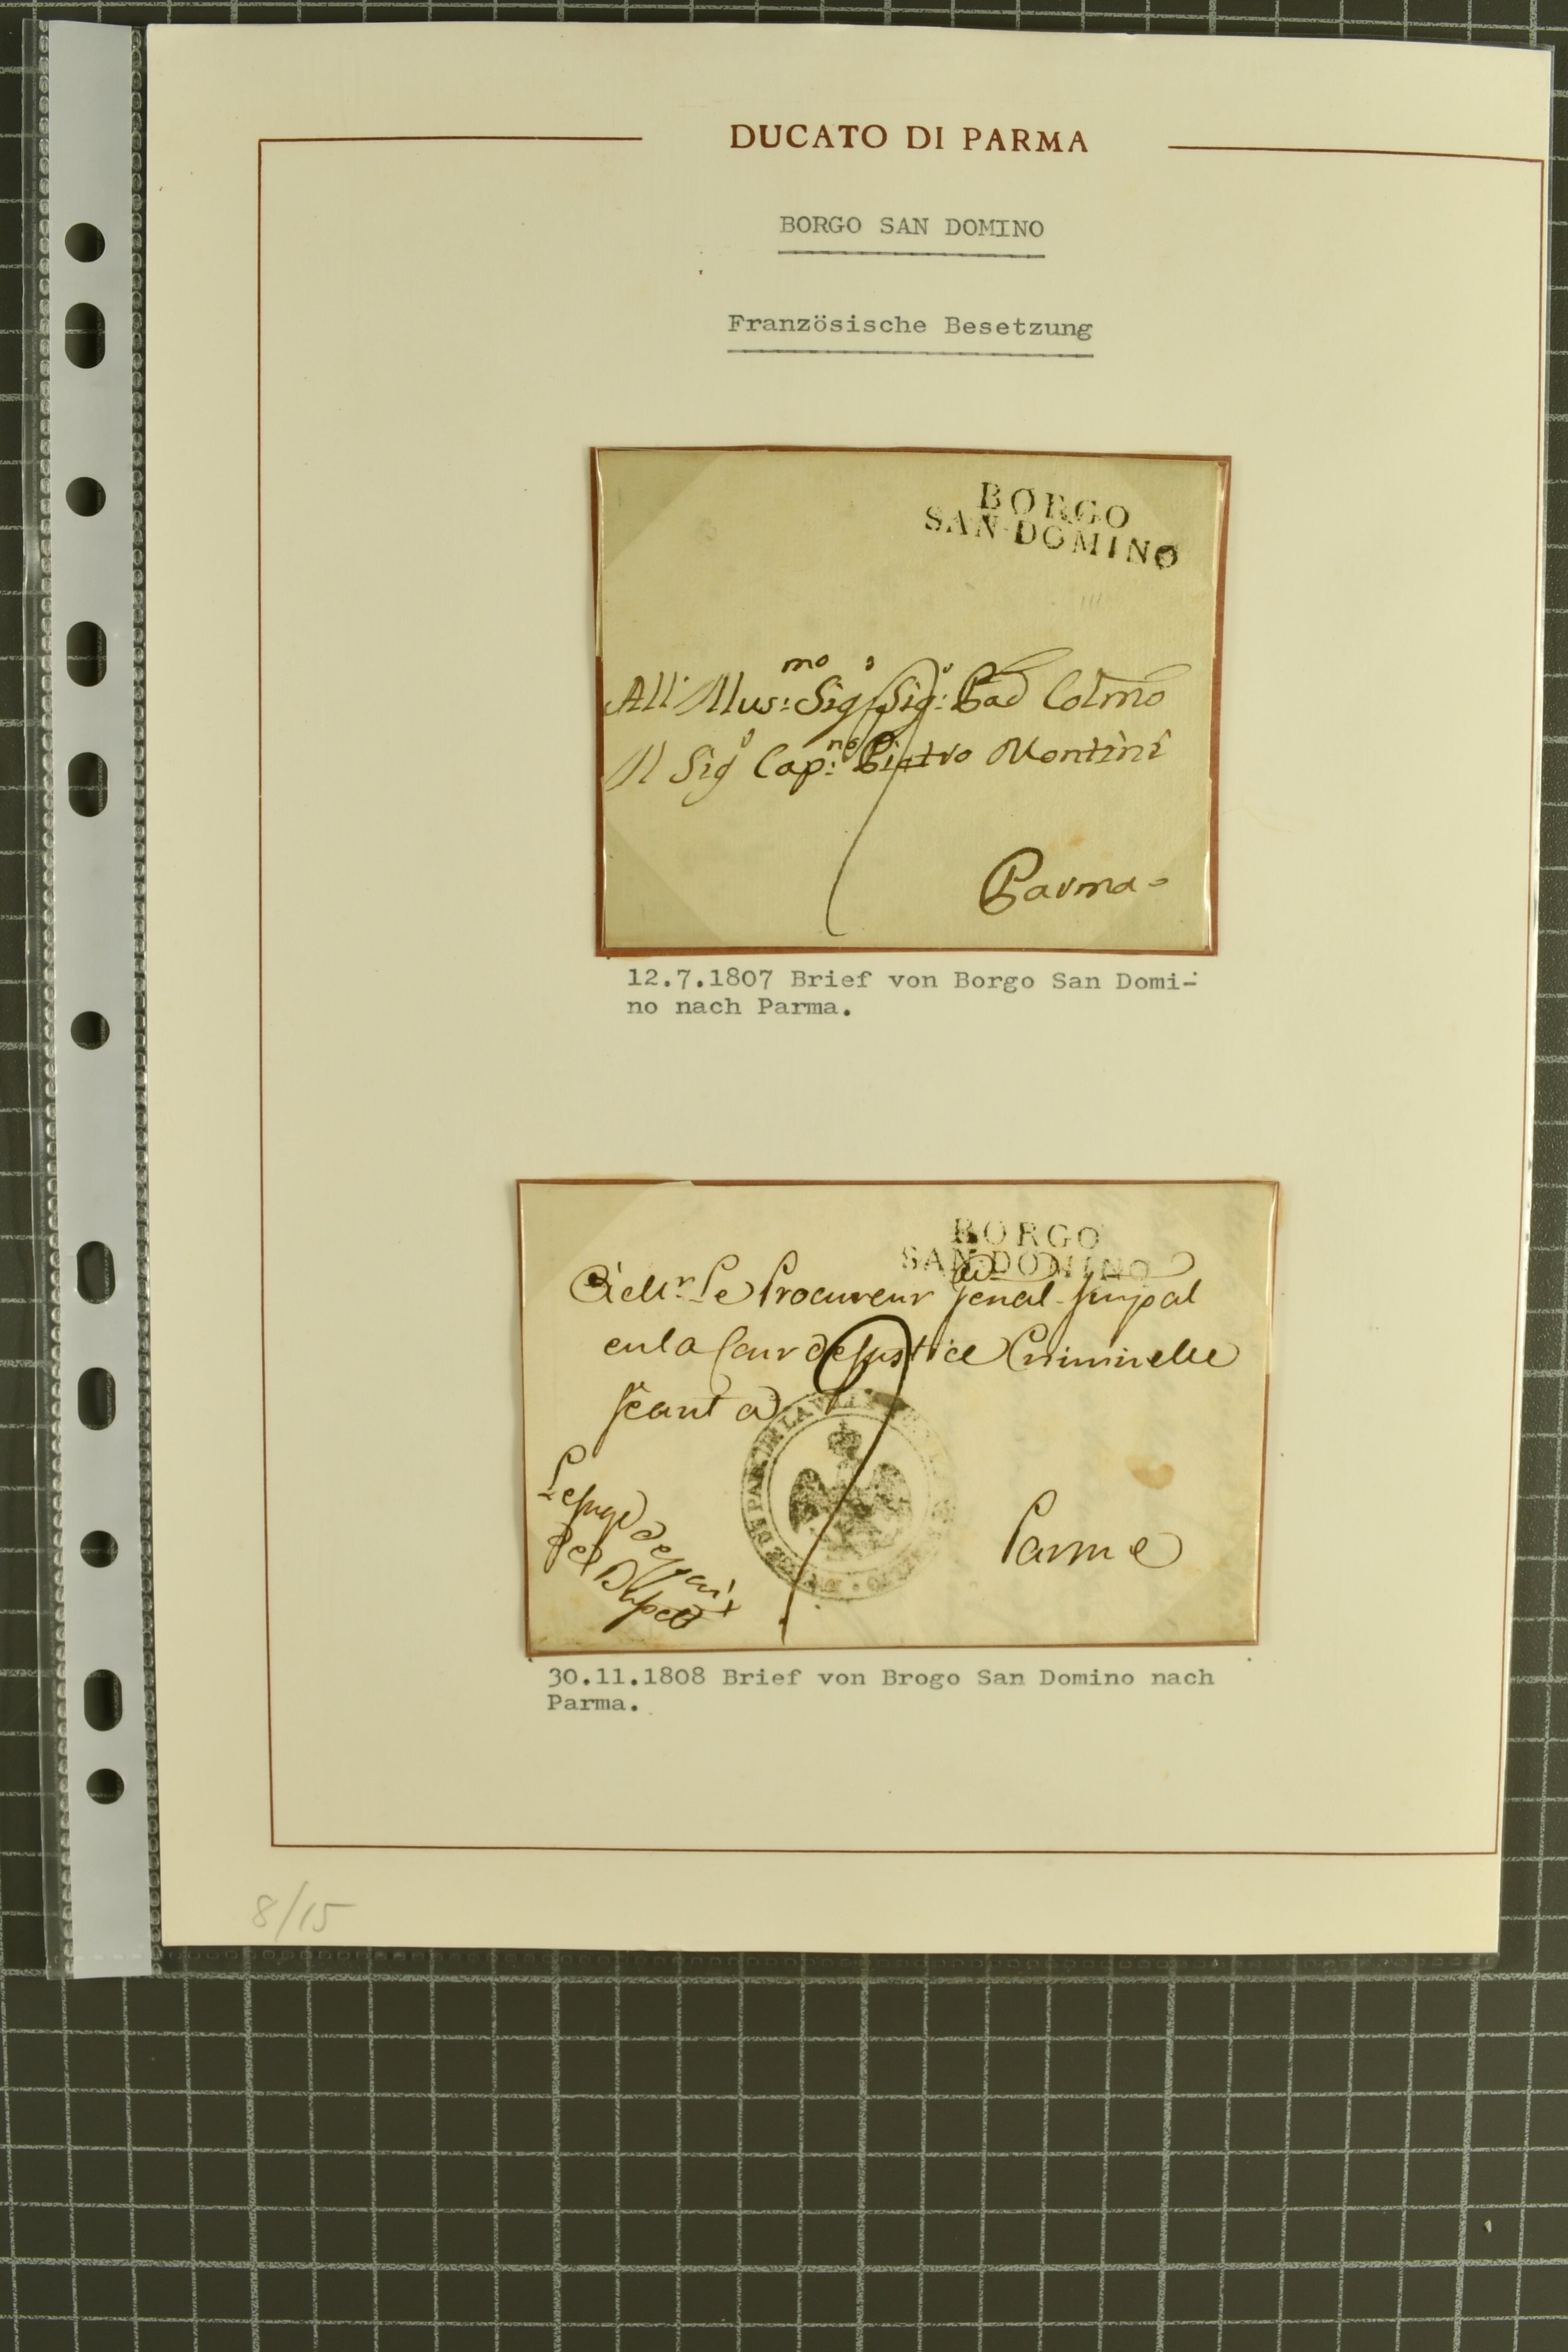 DUCATO DI PARMA
BORGO SAN DOMINO
Französische Besetzung
BORGO
SAN DOMINO
All' Illus:mo Sig Sig: Pad Colmo
Il Sig Cap:no Pietro Montini
Parma
12.7.1807 Brief von Borgo San Domi-
no nach Parma.
BORGO
SAN DOMINO
A Mr. Le Procureur Genal Impal
en la Cour de Justice Criminelle
séant a
Le Juge de paix
Parme
30.11.1808 Brief von Brogo San Domino nach
Parma.
8/15